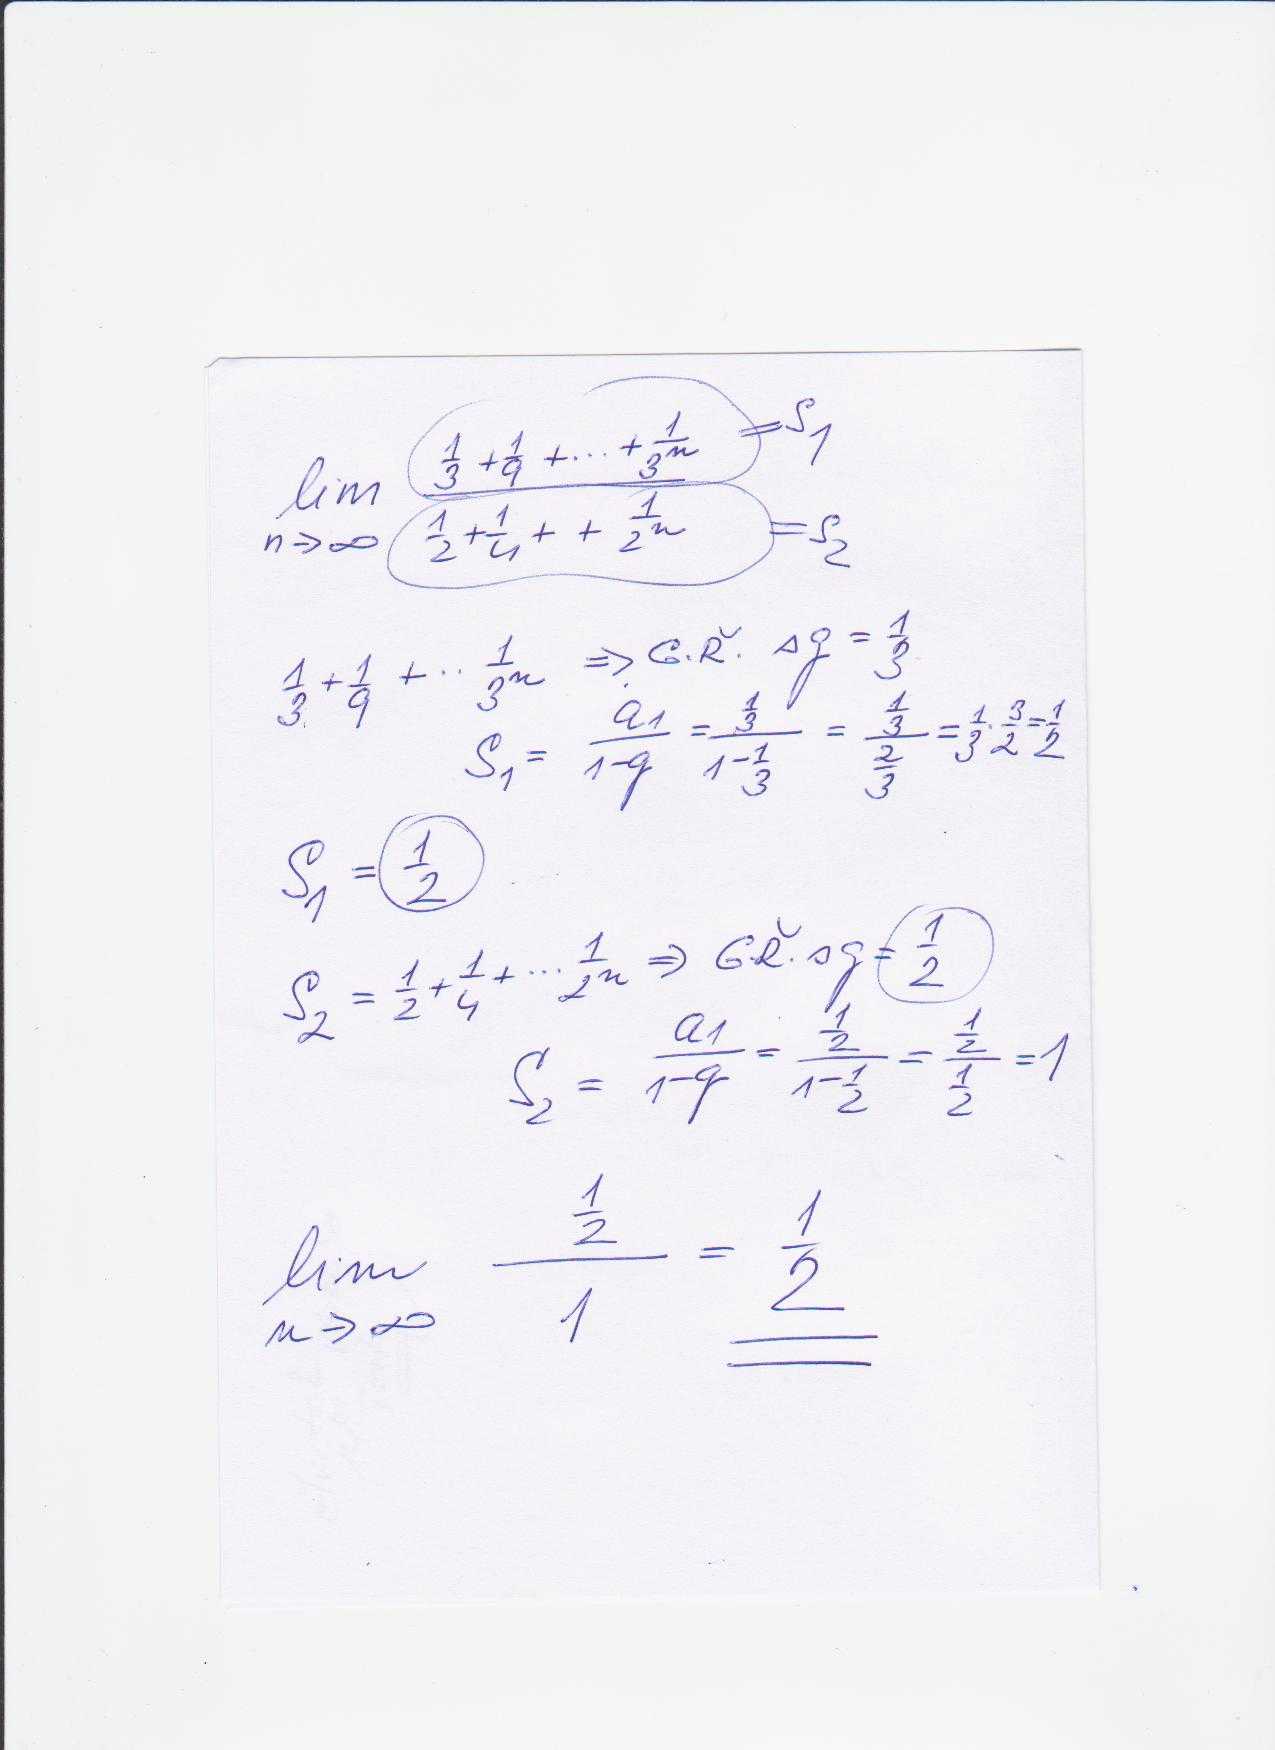 lim n→∞ (1/3 + 1/9 + ... + 1/3^n) / (1/2 + 1/4 + + 1/2^n) = S1 = S2
1/3 + 1/9 + .. 1/3^n ⇒ G.Ř. s q = 1/3
S1 = a1/(1-q) = (1/3)/(1-1/3) = (1/3)/(2/3) = 1/3 · 3/2 = 1/2
S1 = 1/2
S2 = 1/2 + 1/4 + ... 1/2^n ⇒ G.Ř. s q = 1/2
S2 = a1/(1-q) = (1/2)/(1-1/2) = (1/2)/(1/2) = 1
lim n→∞ (1/2)/1 = 1/2